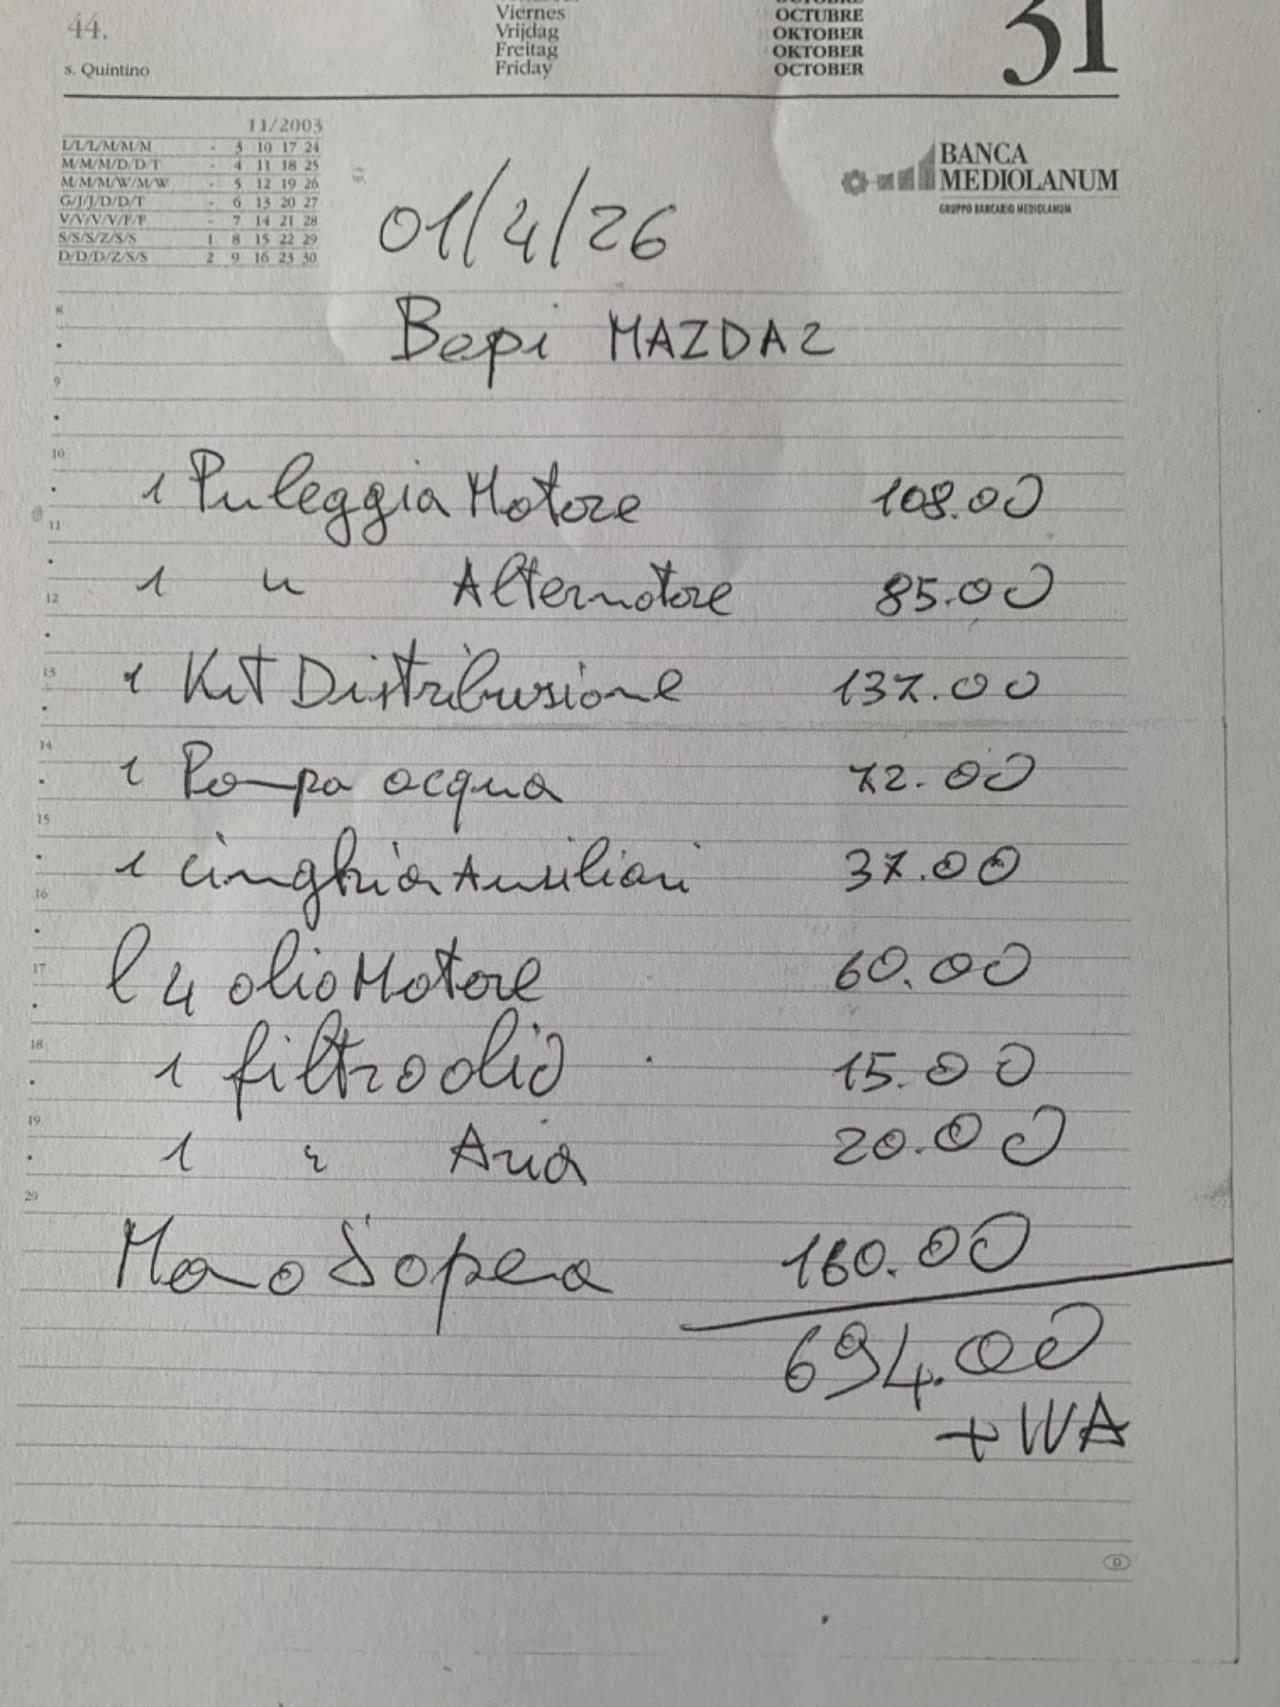 44.
s. Quintino
Viernes
Vrijdag
Freitag
Friday
OCTUBRE
OKTOBER
OKTOBER
OCTOBER
31
11/2003
L/L/L/M/M/M - 3 10 17 24
M/M/M/D/D/T - 4 11 18 25
M/M/M/W/M/W - 5 12 19 26
G/J/J/D/D/T - 6 13 20 27
V/V/V/V/F/F - 7 14 21 28
S/S/S/Z/S/S 1 8 15 22 29
D/D/D/Z/S/S 2 9 16 23 30
BANCA
MEDIOLANUM
GRUPPO BANCARIO MEDIOLANUM
01/4/26
8
Bepi MAZDA 2
9
10
1 Puleggia Motore 108.00
11
1 " Alternatore 85.00
12
13
1 Kit Distribusione 137.00
14
1 Pompa acqua 72.00
15
1 cinghia Ausiliari 37.00
16
17
l 4 olio Motore 60.00
18
1 filtro olio 15.00
19
1 " Aria 20.00
20
Mano D'opera 160.00
694.00
+ IVA
D